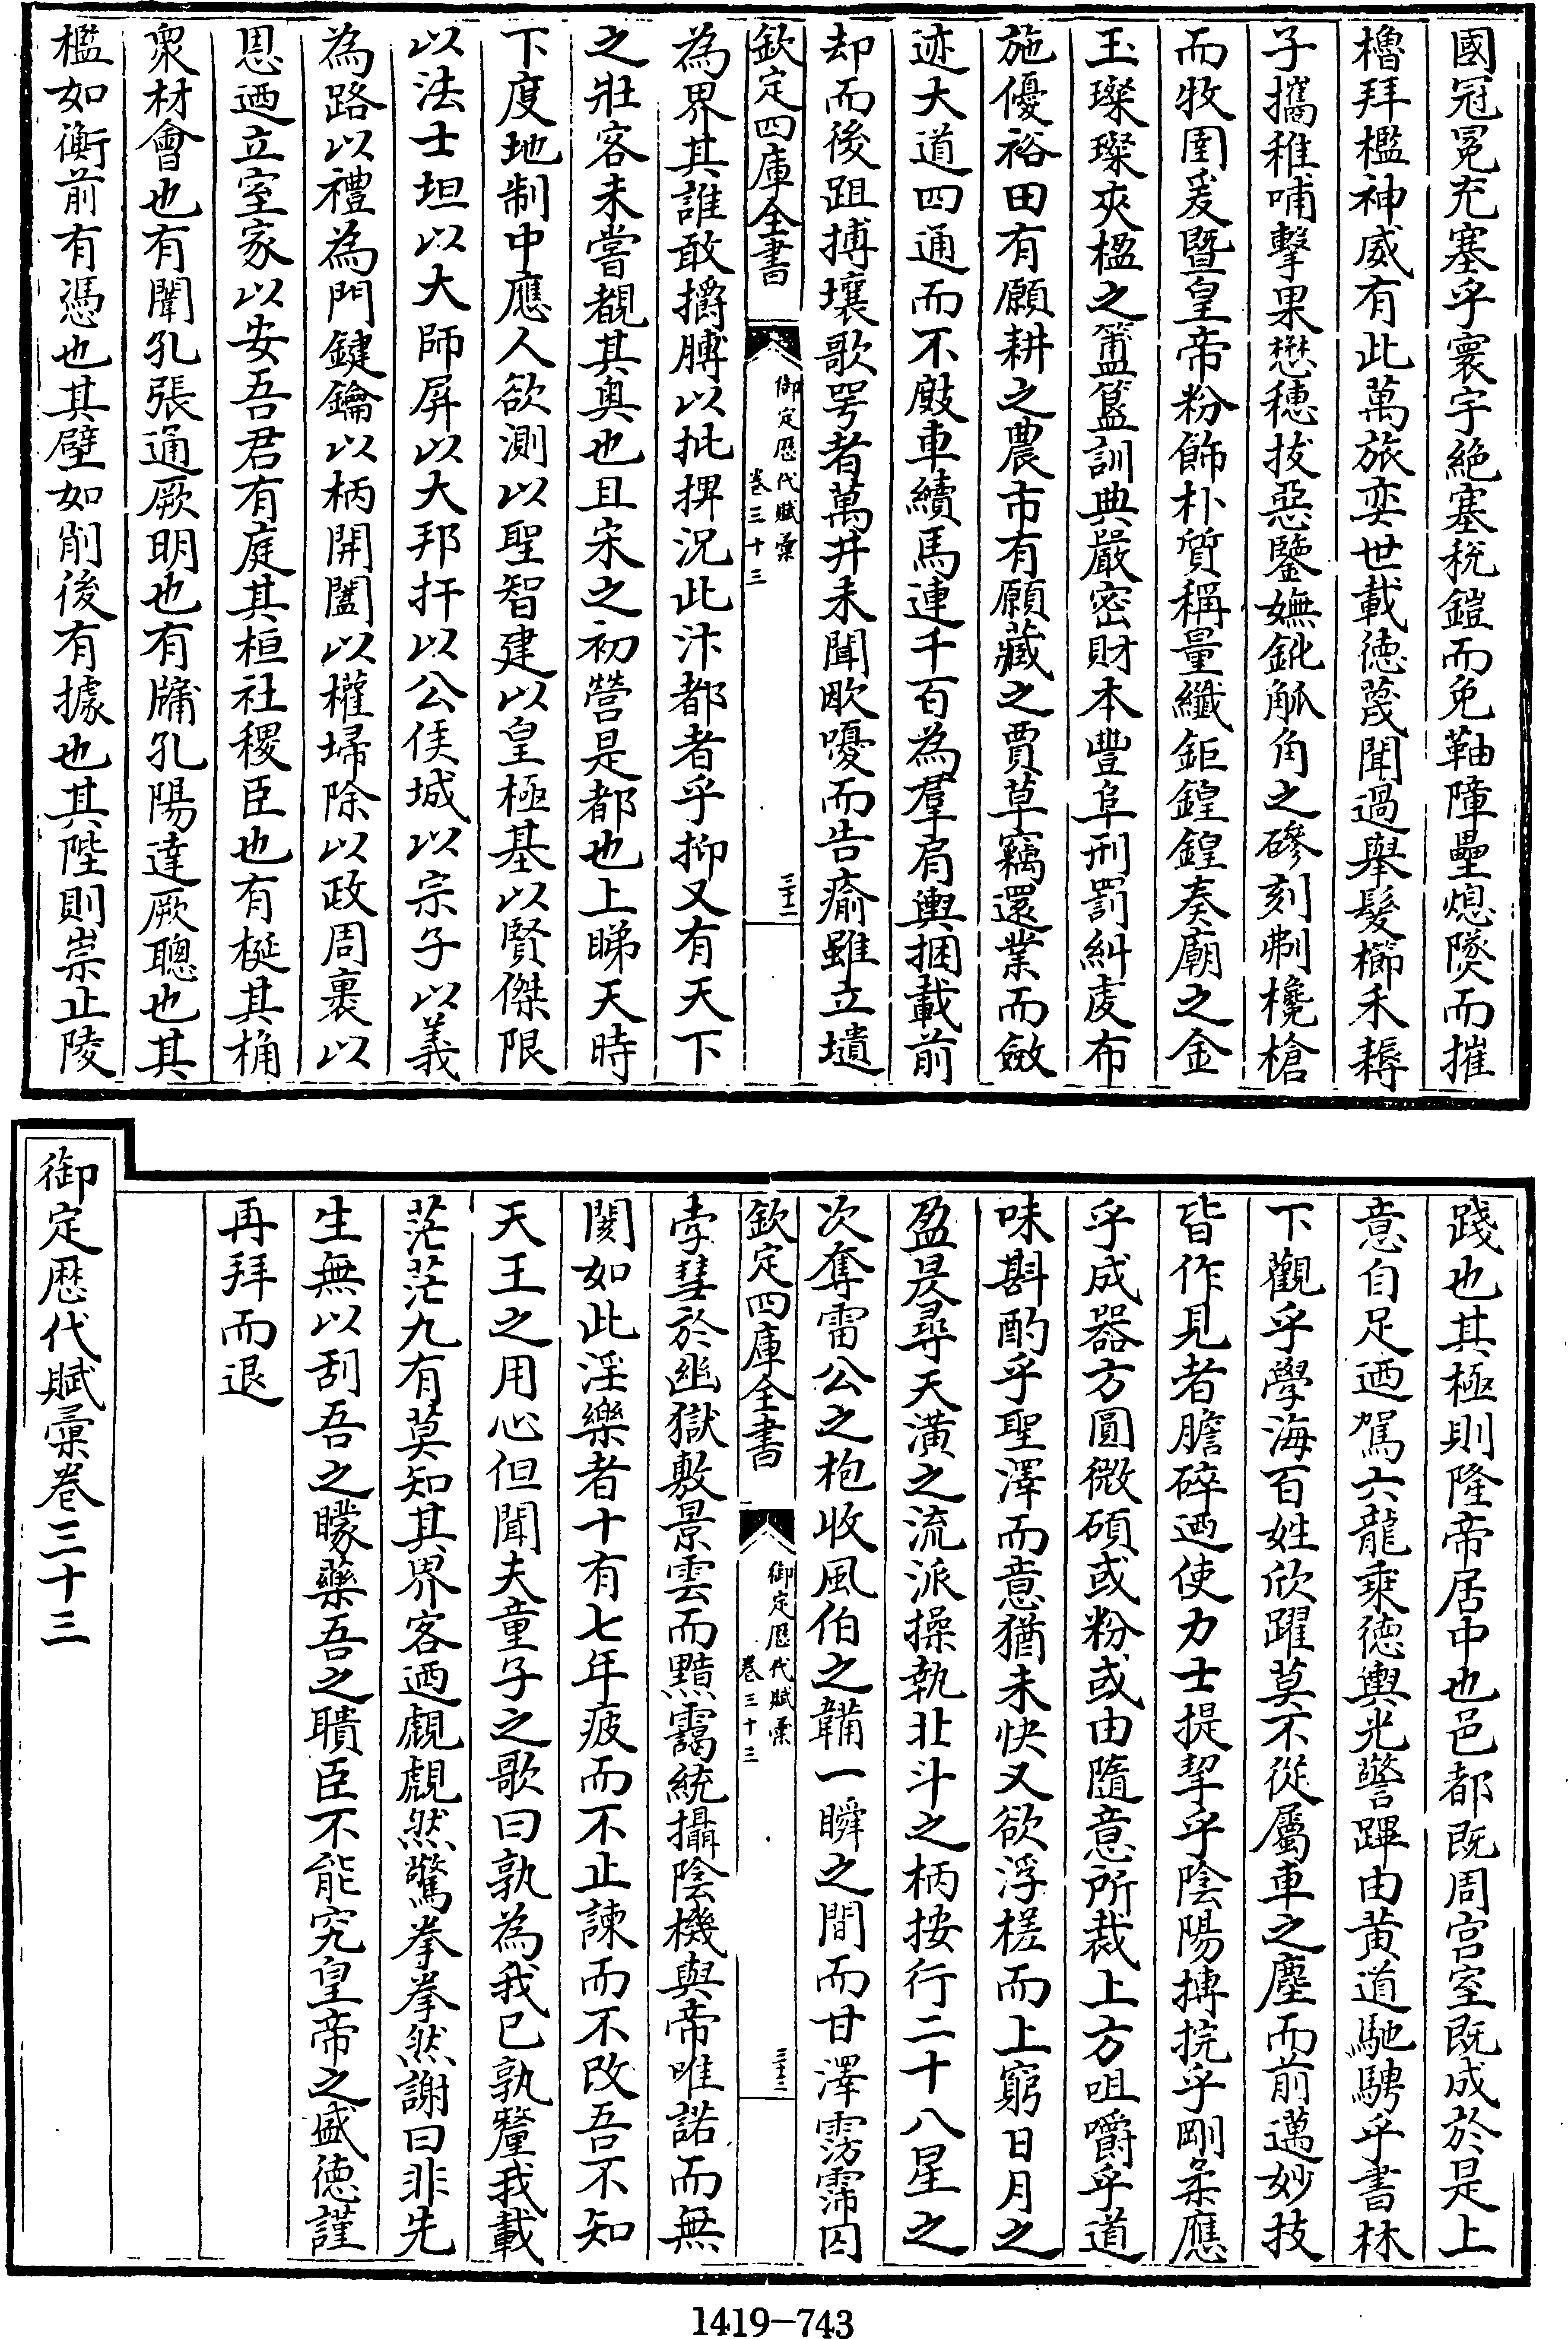 國冠冕充塞乎寰宇絶塞税鎧而免鞈障壘熄燧而摧
櫓拜檻神威有此萬旅奕世載徳蔑聞過舉髮櫛禾耨
子攜稚哺擊果懋穗拔惡鑒嫵鈋觚角之磣刻刜欃槍
而牧圉爰暨皇帝粉飾朴質稱量纖鉅鍠鍠奏廟之金
玉璨璨夾楹之簠簋訓典嚴密財本豐阜刑罰糾虔布
施優裕田有願耕之農市有願藏之賈草竊還業而斂
迹大道四通而不㢟車續馬連千百為羣肩輿捆載前
却而後跙搏壤歌咢者萬井未聞歐嚘而告痡雖立墻
欽定四庫全書
御定厯代賦彙
卷三十三
三十二
為界其誰敢攟膊以批捭況此汴都者乎抑又有天下
之壯客未嘗覩其奥也且宋之初營是都也上睇天時
下度地制中應人欲測以聖智建以皇極基以賢傑限
以法士坦以大師屏以大邦扞以公侯城以宗子以義
為路以禮為門鍵鑰以柄開闔以權埽除以政周裹以
恩迺立室家以安吾君有庭其桓社稷臣也有梴其桷
衆材會也有闈孔張通厥明也有牖孔陽達厥聰也其
檻如衡前有憑也其壁如削後有據也其陛則崇止陵
踐也其極則隆帝居中也邑都既周宫室既成於是上
意自足迺駕六龍乘徳輿光警蹕由黄道馳騁乎書林
下觀乎學海百姓欣躍莫不從屬車之塵而前邁妙技
皆作見者膽碎迺使力士提挈乎陰陽摶捖乎剛柔應
乎成器方圓微碩或粉或由隨意所裁上方咀嚼乎道
味斟酌乎聖澤而意猶未快又欲浮槎而上窮日月之
盈昃尋天潢之流派操執北斗之柄按行二十八星之
次奪雷公之枹收風伯之鞴一瞬之間而甘澤霶霈囚
欽定四庫全書
御定厯代賦彙
卷三十三
三十三
孛彗於幽獄敷景雲而黮靄統攝陰機與帝唯諾而無
閡如此淫樂者十有七年疲而不止諫而不改吾不知
天王之用心但聞夫童子之歌曰孰為我已孰釐我載
茫茫九有莫知其界客迺覤覤然驚拳拳然謝曰非先
生無以刮吾之矇藥吾之聵臣不能究皇帝之盛徳謹
再拜而退
御定厯代賦彙卷三十三
1419-743